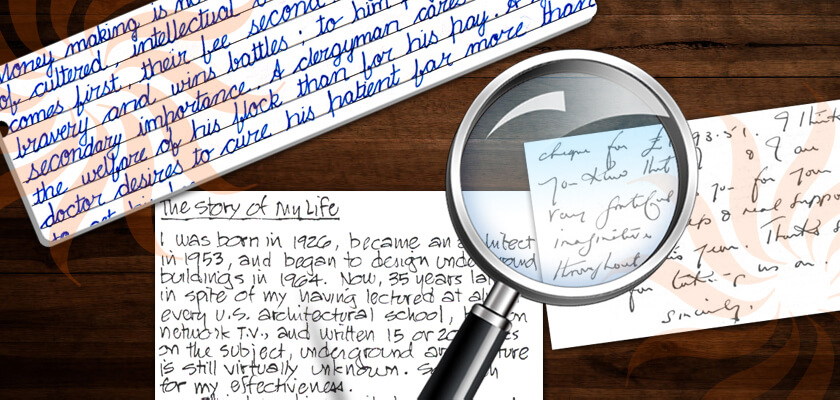 Money making is
of cultured, intellectual
comes first, their fee second
bravery and wins battles; to him
secondary importance. A clergyman cares
the welfare of his flock than for his pay. A
doctor desires to cure his patient far more than
to get his
The Story of My Life
I was born in 1926, became an architect
in 1953, and began to design underground
buildings in 1964. Now, 35 years
in spite of my having lectured at
every U.S. architectural school,
network T.V., and written 15 or 20
on the subject, underground
is still virtually unknown.
for my effectiveness.
cheque for £1 93.51. I think
you knew that & I am
very grateful for your
imaginative & real
throughout year. Thanks
for us on.
sincerely,